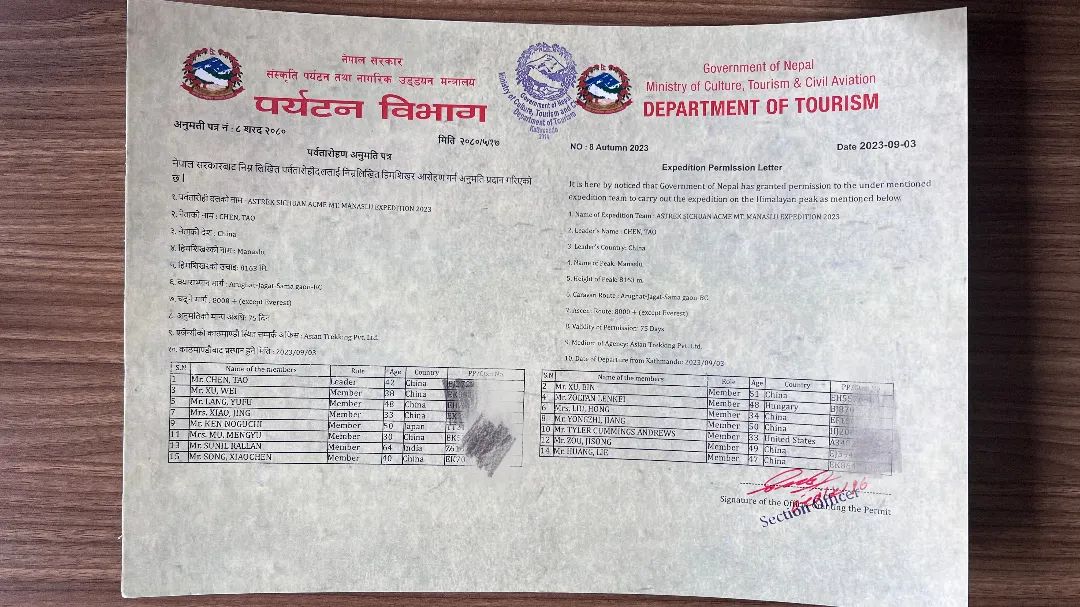 नेपाल सरकार
संस्कृति पर्यटन तथा नागरिक उड्डयन मन्त्रालय
पर्यटन विभाग
अनुमती पत्र नं : ८ शरद २०८०
मिति २०८०/५/१७
पर्वतारोहण अनुमति पत्र
नेपाल सरकारबाट निम्न लिखित पर्वतारोहीदललाई निम्नलिखित हिमशिखर आरोहण गर्न अनुमति प्रदान गरिएको
छ ।
१. पर्वतारोही दलको नाम : ASTREK SICHUAN ACME MT. MANASLU EXPEDITION 2023
२. नेताको नाम : CHEN, TAO
३. नेताको देश : China
४. हिमशिखरको नाम : Manaslu
५. हिमशिखरको उचाइ: 8163 मि.
६. क्याराभान मार्ग : Arughat-Jagat-Sama gaon-BC
७. चढ्ने मार्ग : 8000 + (except Everest)
८. अनुमतिको मान्य अवधि: 75 दिन
९. एजेन्सीको काठमाण्डौ स्थित सम्पर्क अफिस : Asian Trekking Pvt. Ltd.
१०. काठमाण्डौबाट प्रस्थान हुने मिति : 2023/09/03
S.N Name of the members Role Age Country PP/
1 Mr. CHEN, TAO Leader 42 China
3 Mr. XU, WEI Member 28 China
5 Mr. LANG, YUFU Member 48 China
7 Mrs. XIAO, JING Member 33 China
9 Mr. KEN NOGUCHI Member 50 Japan
11 Mrs. MU, MENGYU Member 30 China
13 Mr. SUNIL KALLAN Member 64 India
15 Mr. SONG, XIAOCHEN Member 40 China EK70
Government of Nepal
Ministry of Culture, Tourism & Civil Aviation
DEPARTMENT OF TOURISM
NO : 8 Autumn 2023
Date 2023-09-03
Expedition Permission Letter
It is here by noticed that Government of Nepal has granted permission to the under mentioned
expedition team to carry out the expedition on the Himalayan peak as mentioned below.
1. Name of Expedition Team : ASTREK SICHUAN ACME MT. MANASLU EXPEDITION 2023
2. Leader's Name : CHEN, TAO
3. Leader's Country: China
4. Name of Peak: Manaslu
5. Height of Peak: 8163 m.
6. Caravan Route : Arughat-Jagat-Sama gaon-BC
7. Ascent Route: 8000 + (except Everest)
8. Validity of Permission: 75 Days
9. Medium of Agency: Asian Trekking Pvt. Ltd.
10. Date of Departure from Kathmandu: 2023/09/03
S.N Name of the members Role Age Country PP/
2 Mr. XU, BIN Member 51 China
4 Mr. ZOLTAN LENKEI Member 48 Hungary
6 Mrs. LIU, HONG Member 34 China
8 Mr. YONGZHI, JIANG Member 50 China
10 Mr. TYLER CUMMINGS ANDREWS Member 33 United States
12 Mr. ZOU, JISONG Member 49 China
14 Mr. HUANG, LIE Member 47 China
Signature of the Officer Issuing the Permit
Section Officer
Ministry of Culture, Tourism and
Government of Nepal
Department of Tourism
Kathmandu